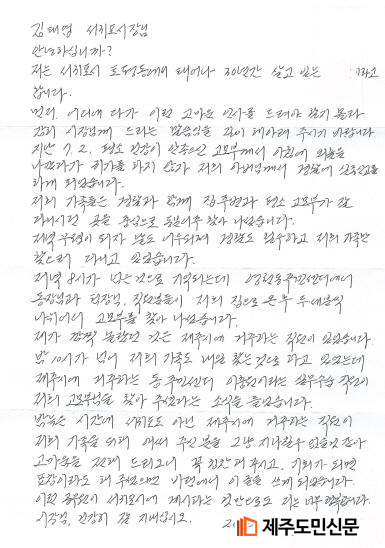 김태엽 서귀포시장님
안녕하십니까?
저는 서귀포시 토평동에서 태어나 30년간 살고 있는 이라고
합니다.
먼저 어디에 다가 이런 고마운 인사를 드려야 할지 몰라
감히 시장님께 드리는 말씀임을 깊이 헤아려 주시기 바랍니다.
지난 7.2. 평소 건강이 안좋으신 고모부께서 아침에 외출을
나갔다가 귀가를 하지 않자 저희 아버님께서 경찰에 실종신고를
하게 되었습니다.
저희 가족들은 경찰과 함께 집주변과 평소 고모부가 잘
다니시던 곳을 중심으로 찾아 나섰습니다.
저녁 무렵이 되자 날도 어두워져 경찰도 철수하고 저희 가족만
찾으러 다니고 있었습니다.
저녁 8시가 넘은 것으로 기억되는데 영천동주민센터에서
동장님과 직원들이 저희 집으로 온 후
나뉘어서 고모부를 찾아 나섰습니다.
제가 깜짝 놀랐던 것은 제주시에 거주하는 직원이 있었습니다.
밤 10시가 넘어 저희 가족도 내일 찾는 것으로 하고 있었는데
제주시에 거주하는 동주민센터 직원이
저희 고모부님을 찾아 주셨다는 소식을 들었습니다.
밤늦은 시간에 서귀포도 아닌 제주시에 거주하는 직원이
저희 가족을 위해 애써 주신 것을 그냥 지나칠수 없을것 같아
고마움을 전해 드리오니 꼭 칭찬해 주시고, 기회가 되면
표창이라도 해 주셨으면 바램에서 이 글을 쓰게 되었습니다.
이런 공무원이 서귀포시에 계시다는 것만으로도 저는 너무 행복합니다.
시장님, 건강히 잘 지내십시오.
제주도민신문